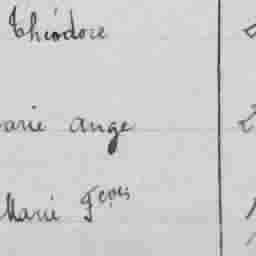 Théodore
arie Ange
Marie Fçois